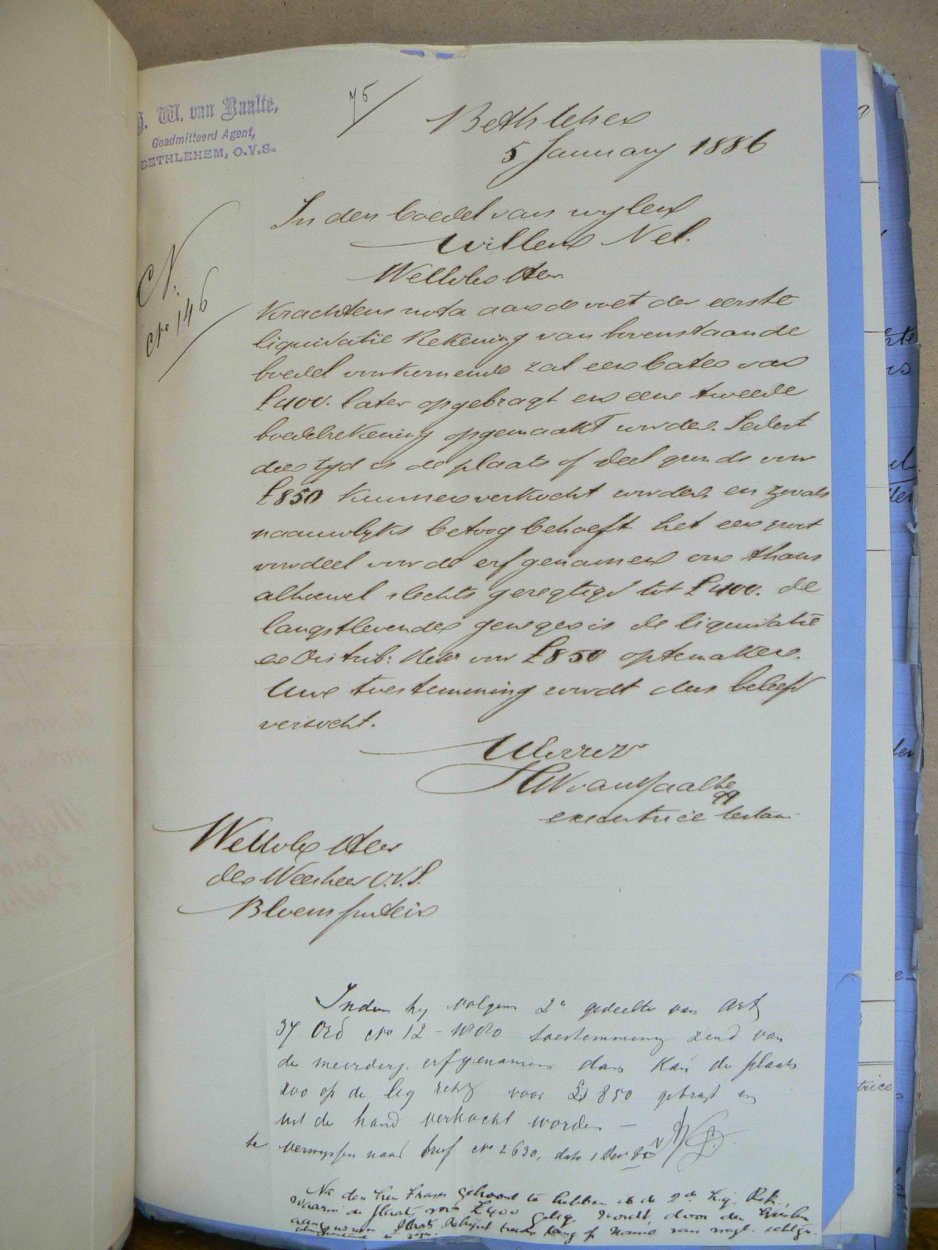 W. van Baalte,
Geadmitteerd Agent,
BETHLEHEM, O.V.S.
75/
Bethlehem
5 January 1886
No 146
In den boedel van wylen
Willem Nel.
WelEdele Heer
Krachtens nota aan de voet der eerste
liquidatie Rekening van bovenstaande
boedel voorkomende zal een bates van
£400. later opgebragt en eene tweede
boedelrekening opgemaakt worden. Sedert
dien tyd is de plaats of deel gronds voor
£850 kunnen verkocht worden en zooals
naauwlyks betoog behoeft het een groot
voordeel voor de erfgenamen ons thans
alhoewel slechts geregtigd tot £400. de
langstlevende genegen is de liquidatie
en Distrib: Rek. voor £850 optemaken.
Uwe toestemming wordt dus beleefd
verwacht.
H W van Baalte
qq
executrice testam:
WelEdele Heer
den Weesheer O.V.S.
Bloemfontein
Indien hy volgens 2e gedeelte van Art
37 Ord No 12 - 1880 toestemming zend van
de meerderj. erfgenamen dan kan de plaats
zoo op de liq voor £850 gebragt en
uit de hand verkocht worden —
te verwyzen naar brief No 2630, dato 1 Dec 85
Na den Heer gehoord te hebben is de 2de Liq. Rek.
waarin de plaats voor £400 wordt, door den